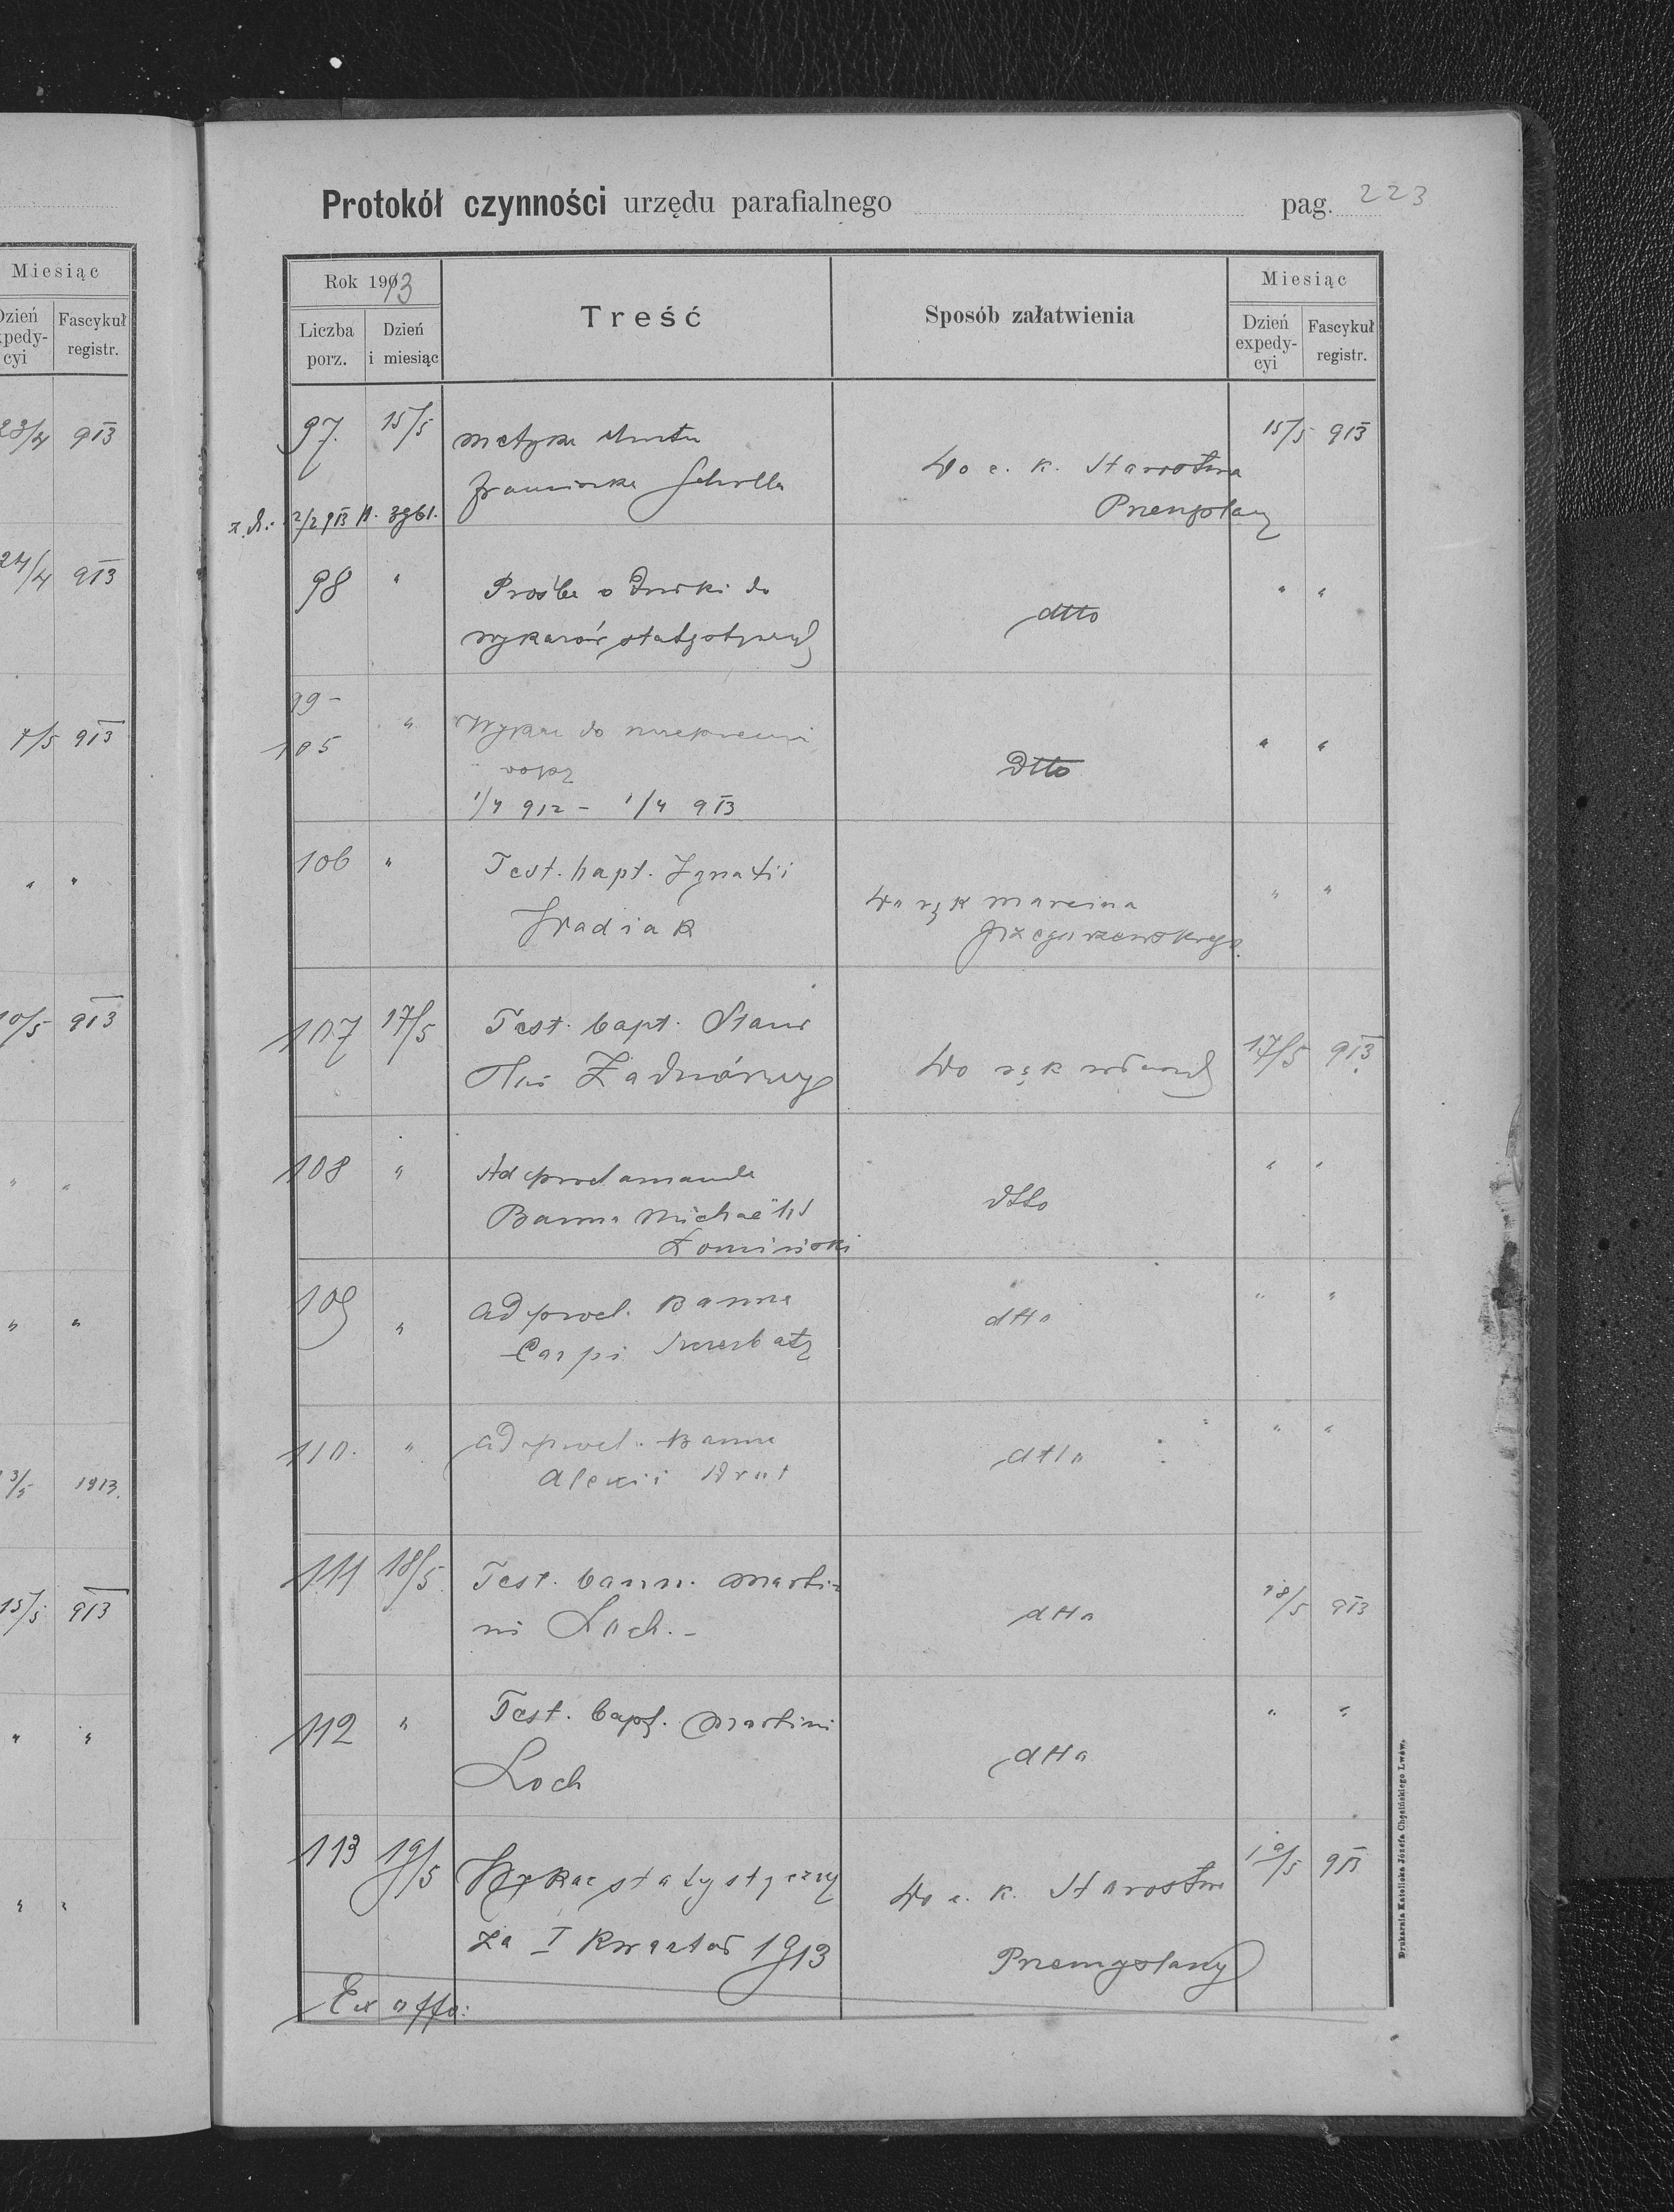 Miesiąc
Dzień expedycyi
Fascykuł registr.
23/4 913
24/4 913
7/5 913
" "
10/5 913
" "
" "
13/5 1913.
15/5 913
" "
" "
Protokół czynności urzędu parafialnego pag. 223
Rok 1913
Liczba porz.
Dzień i miesiąc
Treść
Sposób załatwienia
Miesiąc
Dzień expedycyi
Fascykuł registr.
97. 15/5 Metryka
Franciszka Scholla
Do c. k. Starostwa
Przemyślany
15/5 913
z d: 12/2 913 l. 3961.
98 " Prośba o druki do
wykazów statystycznych
dtto
" "
99 -
105 " Wykaz do
1/4 912 - 1/4 913
Dtto
" "
106 " Test. bapt. Ignatii
Hradiak
Do rąk Marcina
Grzegorzewskiego
" "
107 17/5 Test. bapt. Stanis
Zadwórny
Do rąk własnych
17/5 913
108 " Ad proclamanda
Banna Michaëlis
Łomiński
dtto
" "
109 " Ad procl. Banna
dtto
" "
110. " Ad procl. Banna
Alexii
dtto
" "
111 18/5 Test. bann. Marti-
ni Loch. -
dtto
18/5 913
112 " Test. bapt. Martini
Loch
dtto
" "
113 19/5 Wykaz statystyczny
za I kwartał 1913
Do c. k. Starostwa
Przemyślany
19/5 913
Ex offo:
Drukarnia Katolicka Józefa Chęcińskiego Lwów.